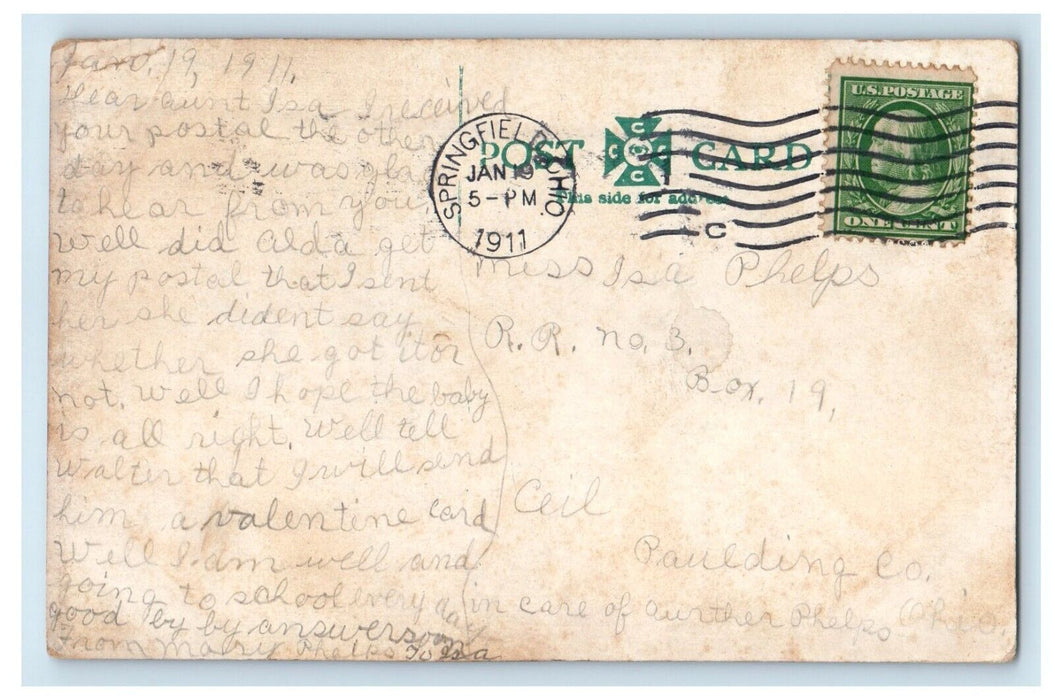 Jan. 19, 1911.
Dear aunt Isa I received
your postal the other
day and was glad
to hear from you
Well did Alda get
my postal that I sent
her she dident say
whether she got it or
not. Well I hope the baby
is all right. Well tell
Walter that I will send
him a valentine card
Well I am well and
going to school every day
good by by answer soon
From Mary Phelps To Isa
POST CARD
C C C C
This side for address
SPRINGFIELD OHIO
JAN 19
5-PM
1911
C
U.S. POSTAGE
ONE CENT
Miss Isa Phelps
R. R. no. 3.
Box. 19,
Ceil
Paulding Co.
Ohio.
in care of aurther Phelps